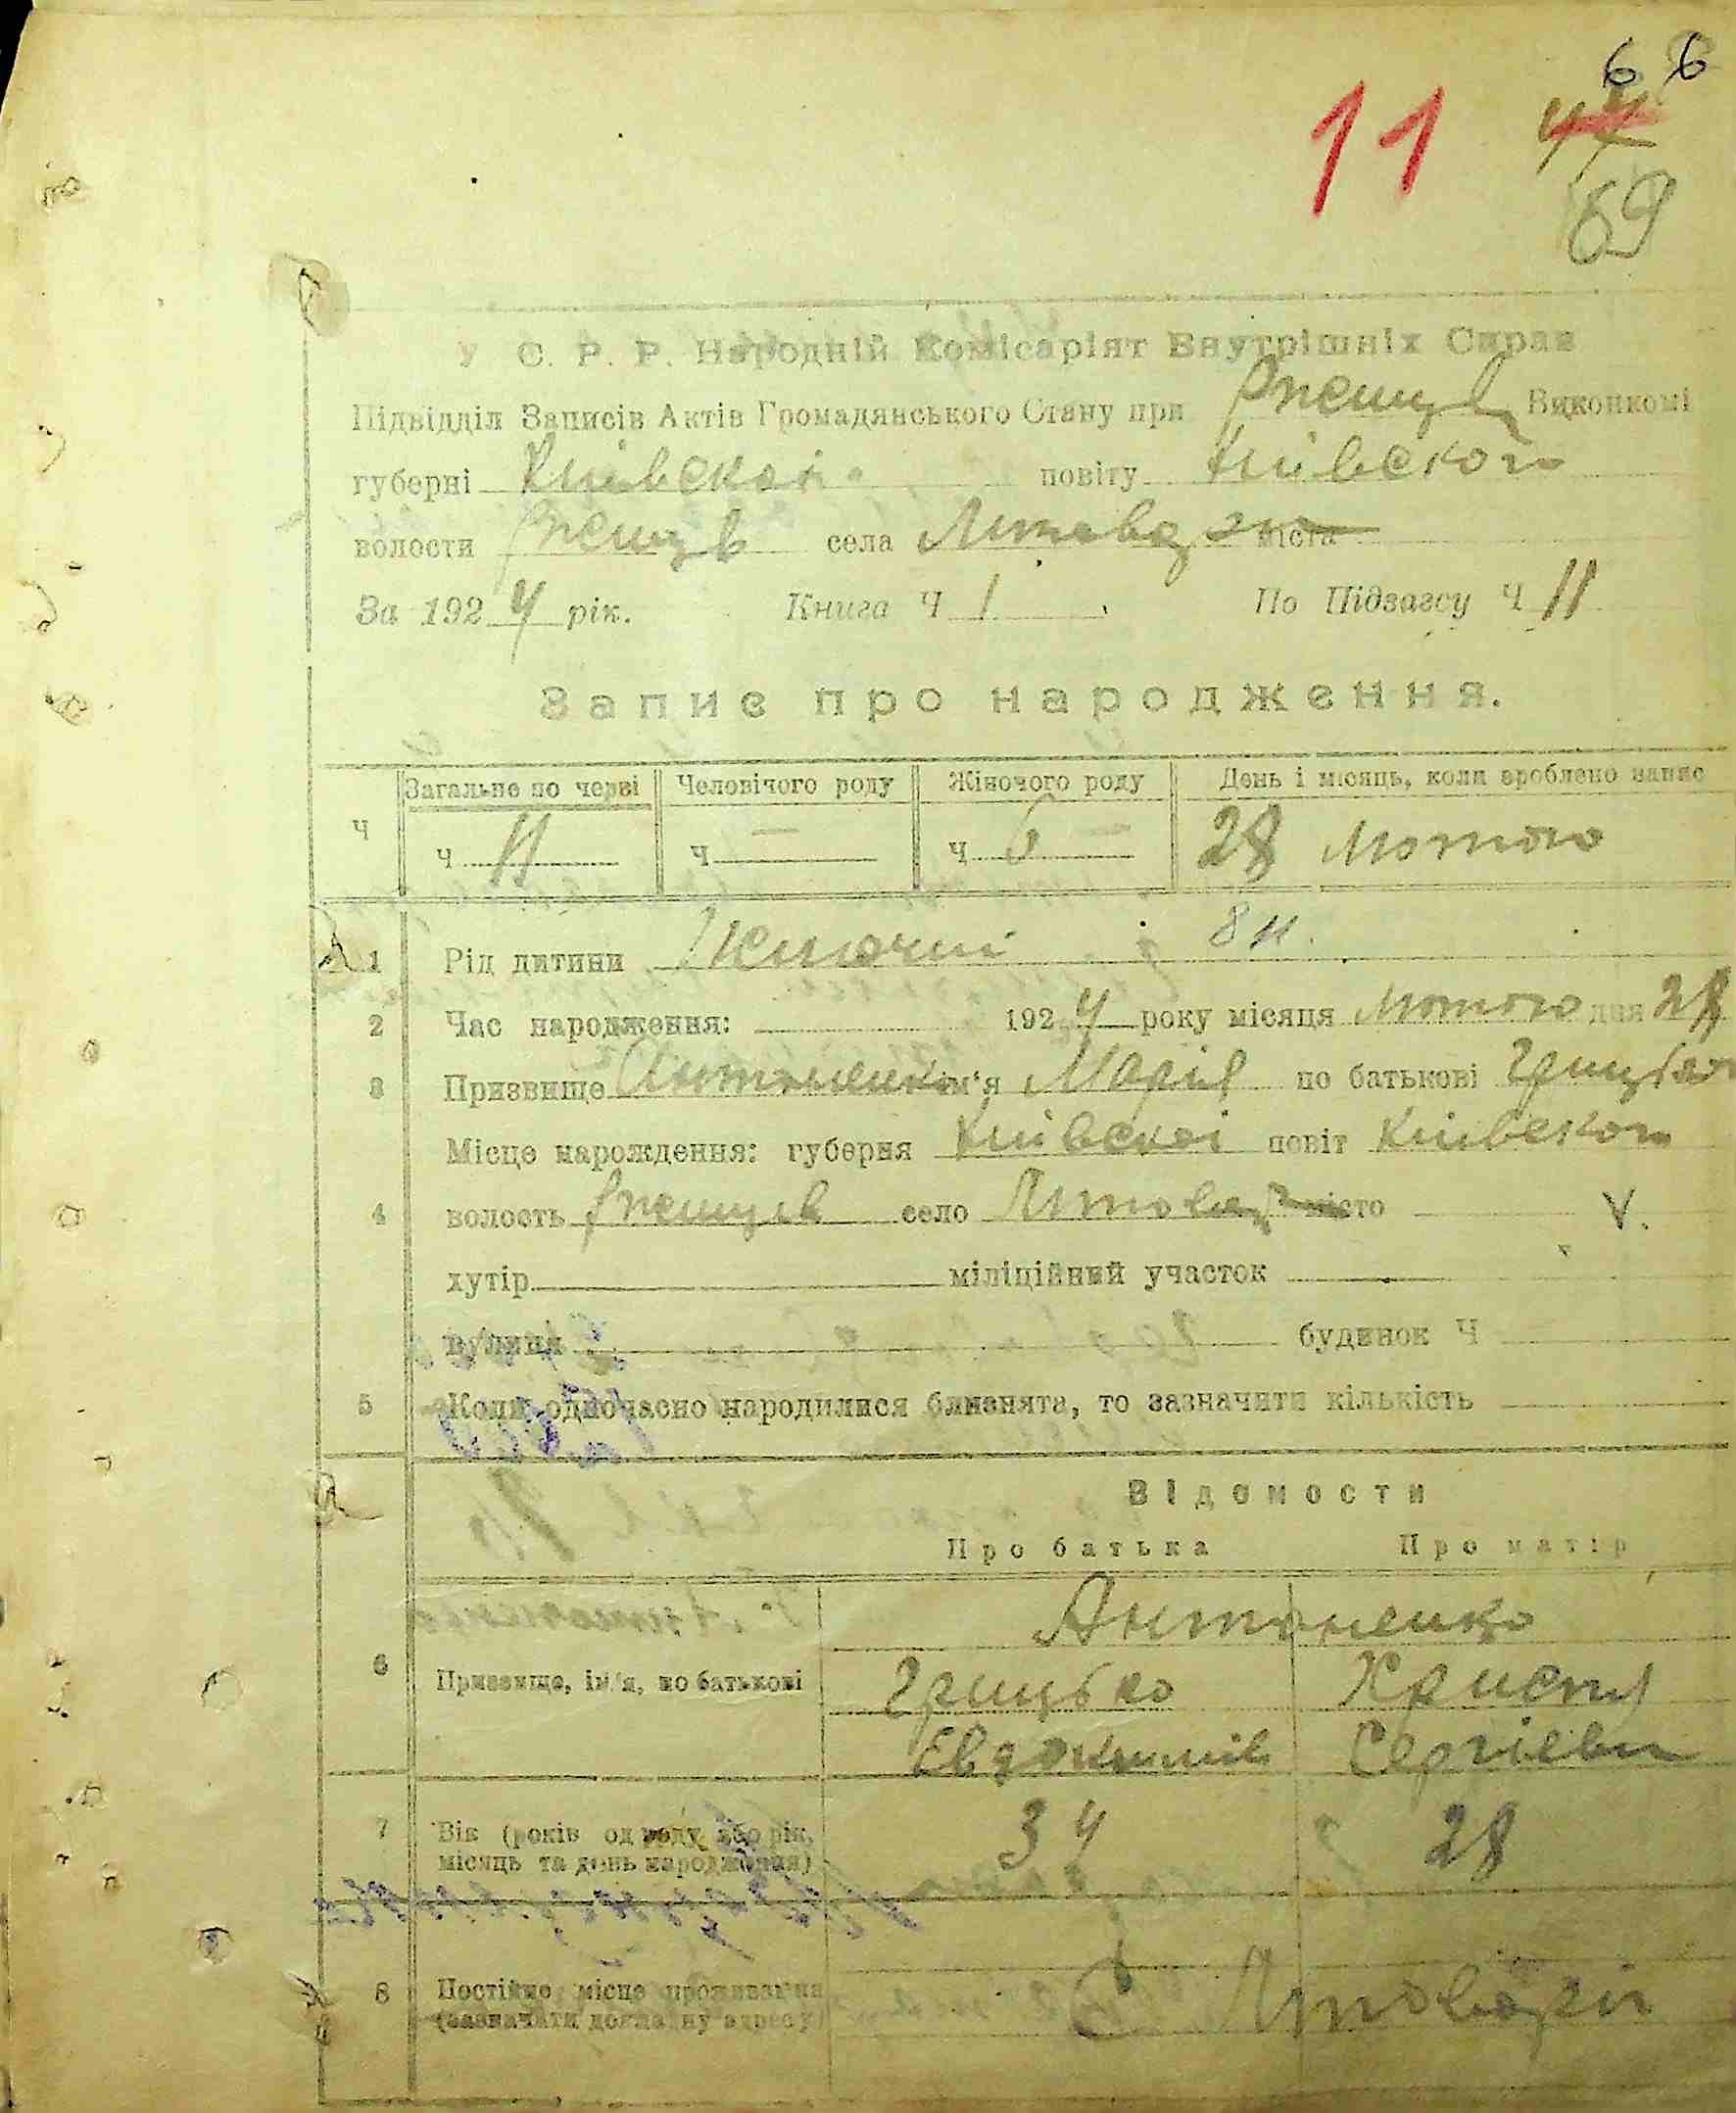 6 6
11
44
69
У С. Р. Р. Народній Комісаріят Внутрішніх Справ
Підвідділ Записів Актів Громадянського Стану при Ржищів Виконкомі
губерні Київскоі повіту Київского
волости Ржищів села міста
За 1924 рік. Книга Ч 1 По Підзагсу Ч 11
Запис про народження.
Ч Загальне по черзі Человічого роду Жіночого роду День і місяць, коли зроблено запис
Ч 11 Ч — Ч 6 — 28 Лютого
1 Рід дитини Жіночий 8 н.
2 Час народження: 1924 року місяця Лютого дня 28
3 Призвище Антоненко ім'я Марія по батькові
Місце нарождення: губерня Київскоі повіт Київского
4 волость Ржищів село місто V.
хутір міліційний участок
вулиця будинок Ч
5 Коли одночасно народилися близнята, то зазначити кількість
Відомости
Про батька Про матір
Антоненко
6 Призвище, ім'я, по батькові Грицько Христя
Евдокимів Сергіевн
7 Вік (років од роду або рік, 34 28
місяць та день народження)
8 Постійне місце проживання С
(зазначити докладну адресу)